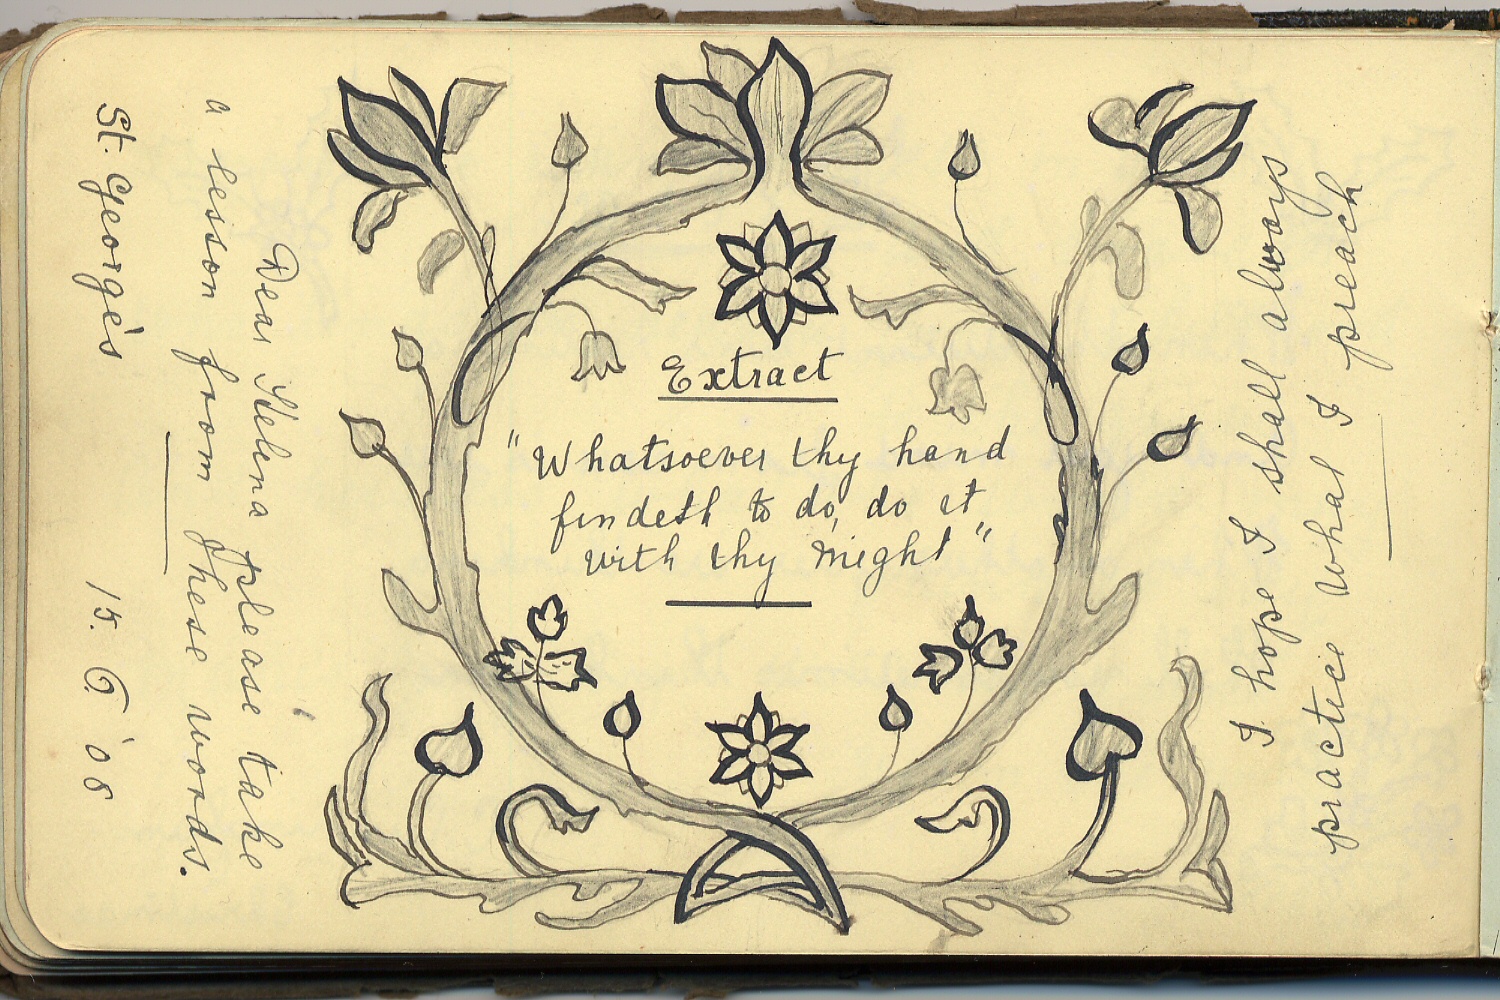 Extract
"Whatsoever thy hand
findeth to do, do it
with thy might"
Dear Helena please take
a lesson from these words.
St. George's 15. 6. '08
I hope I shall always
practice what I preach